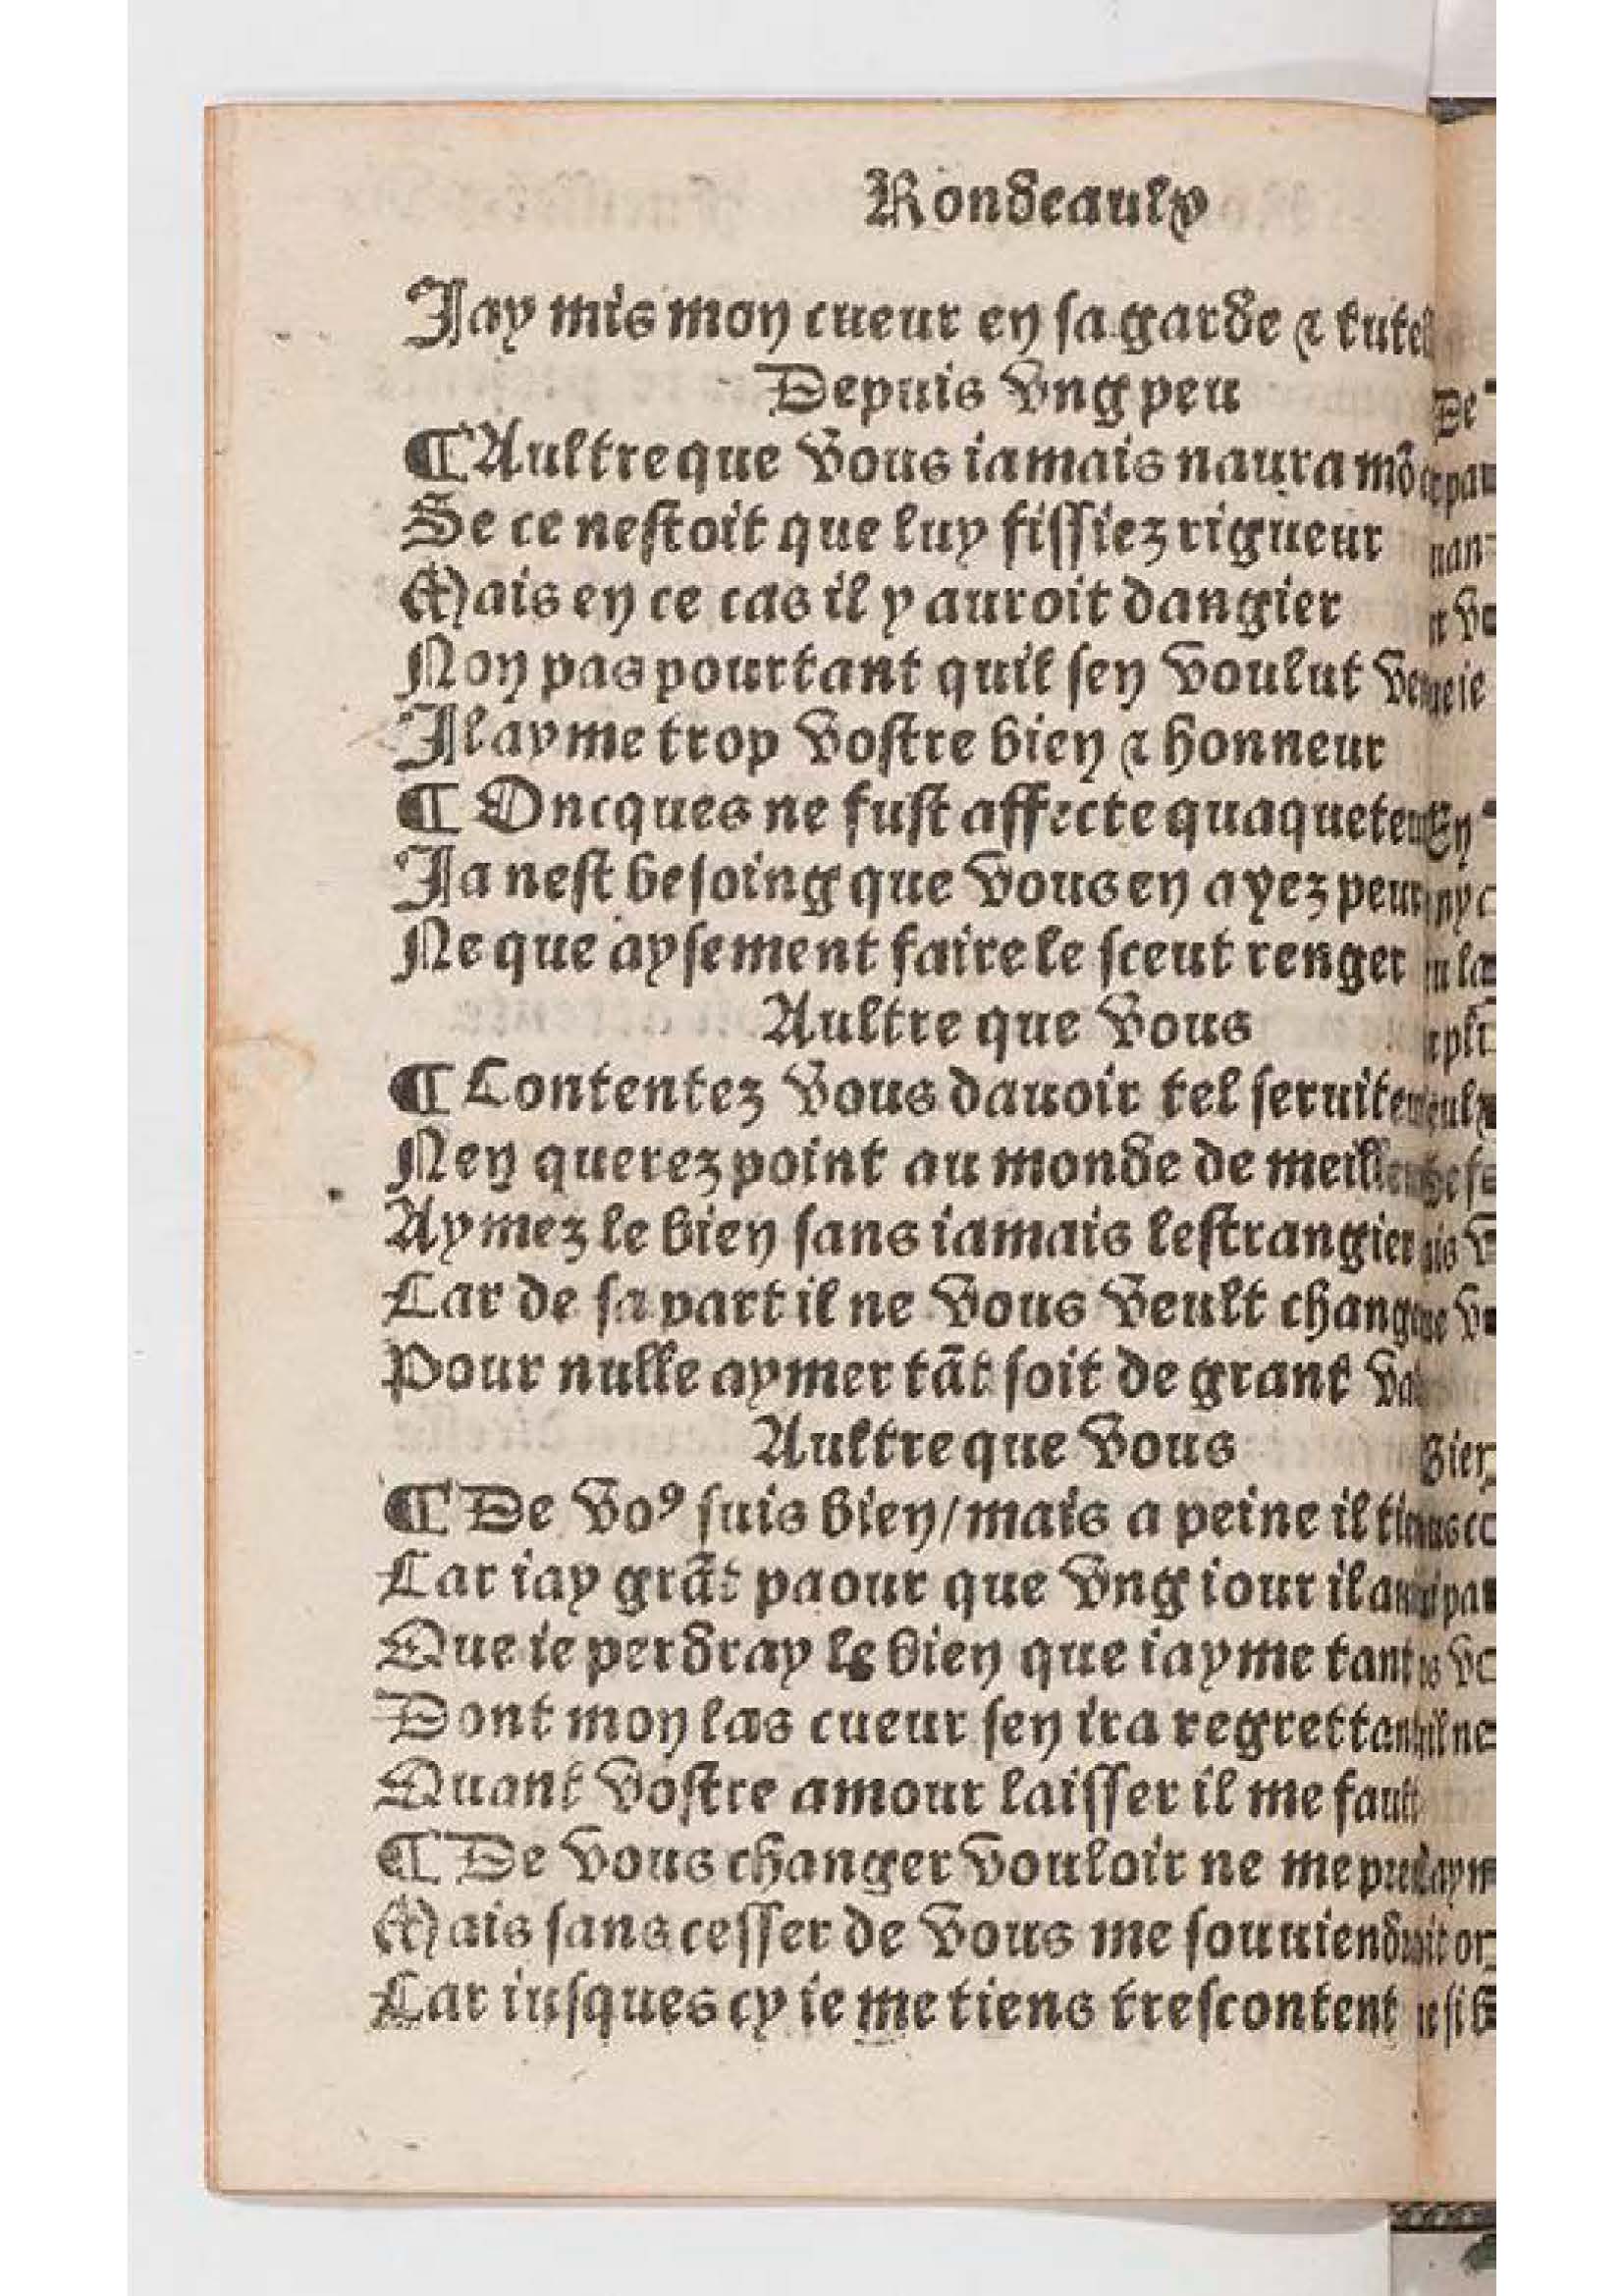 Rondeaulx
Jay mis mon cueur en sa garde ⁊ tutel
Depuis vng peu
¶ Aultre que vous iamais naura mõ
Se ce nestoit que luy fissiez rigueur
Mais en ce cas il y auroit dangier
Non pas pourtant quil sen voulut
Il ayme trop vostre bien ⁊ honneur
¶ Oncques ne fust affecte quaqueteur
Ja nest besoing que vous en ayez peur
Ne que aysement faire le sceut renger
Aultre que vous
¶ Contentez vous dauoir tel seruiteur
Nen querez point au monde de meilleur
Aymez le bien sans iamais lestrangier
Car de sa part il ne vous veult chang
Pour nulle aymer tãt soit de grant va
Aultre que vous
¶ De voꝰ suis bien/mais a peine il
Car iay grãt paour que vng iour il
Que ie perdray le bien que iayme tant
Dont mon las cueur sen ira regrettant
Quant vostre amour laisser il me fault
¶ De vous changer vouloir ne me
Mais sans cesser de vous me souuiendr
Car iusques cy ie me tiens trescontent